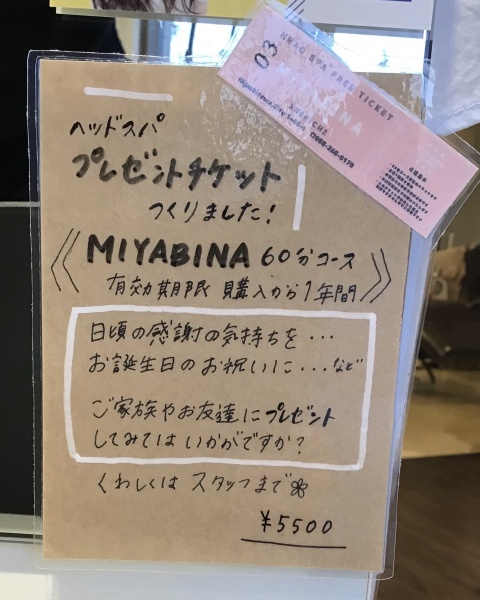 ヘッドスパ
プレゼントチケット
つくりました!
《MIYABINA 60分コース》
有効期限 購入から1年間
日頃の感謝の気持ちを・・・
お誕生日のお祝いに・・・など
ご家族やお友達にプレゼント
してみてはいかがですか?
くわしくは スタッフまで
¥5500
03
HEAD SPA FREE TICKET
MIYABINA